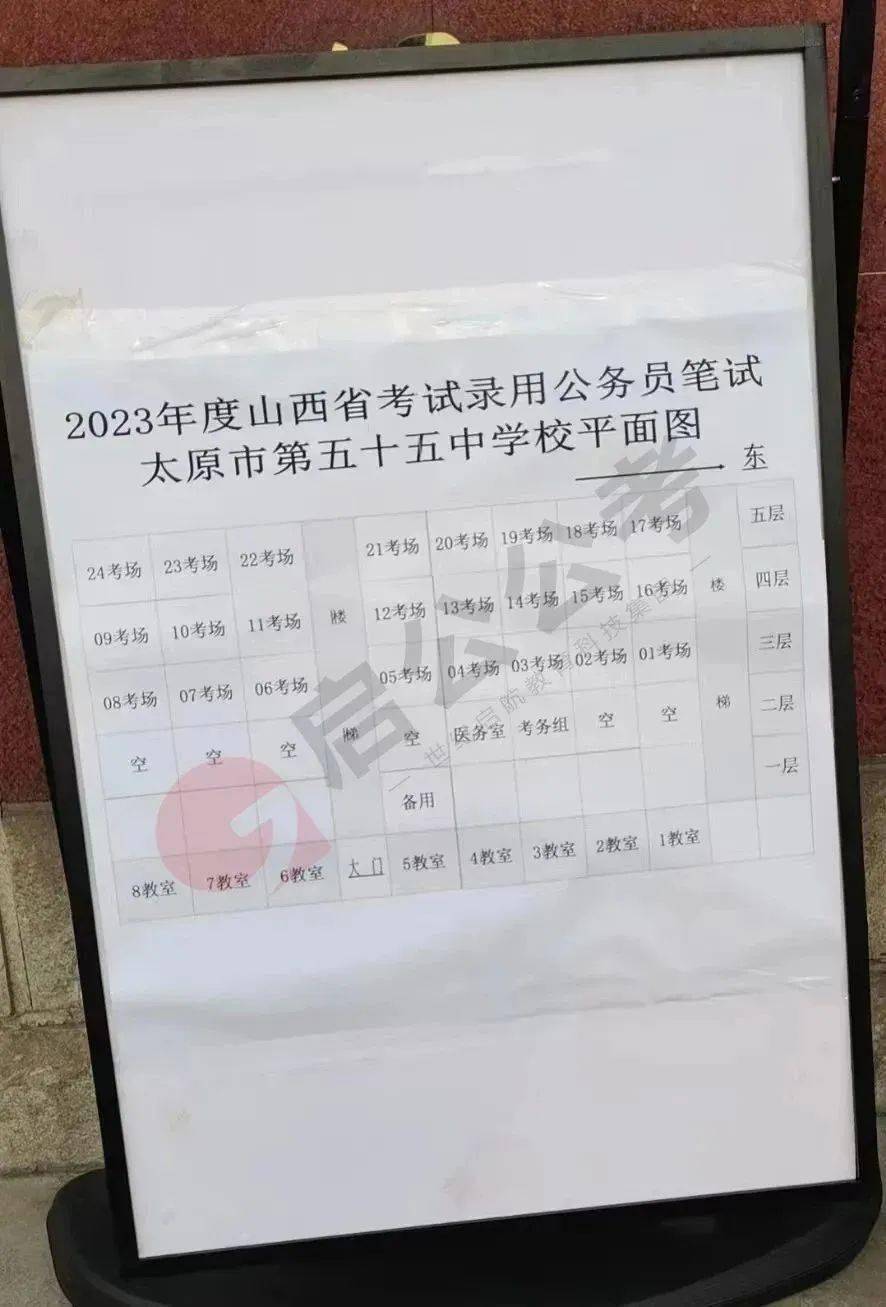 2023年度山西省考试录用公务员笔试
太原市第五十五中学校平面图
东
24考场 23考场 22考场 21考场 20考场 19考场 18考场 17考场 五层
09考场 10考场 11考场 楼 12考场 13考场 14考场 15考场 16考场 楼 四层
08考场 07考场 06考场 05考场 04考场 03考场 02考场 01考场 三层
空 空 空 梯 空 医务室 考务组 空 空 梯 二层
备用 一层
8教室 7教室 6教室 大门 5教室 4教室 3教室 2教室 1教室
启公公考
世纪启航教育科技集团